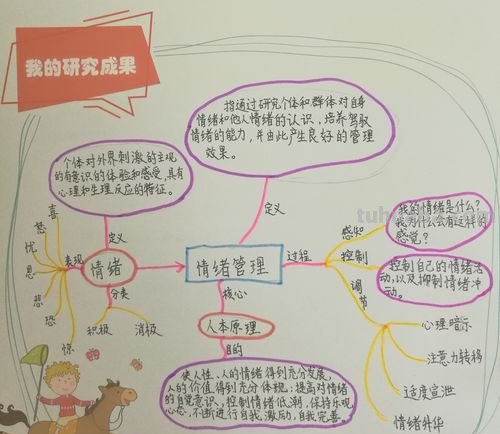 我的研究成果
指通过研究个体和群体对自身
情绪和他人情绪的认识,培养驾驭
情绪的能力,并由此产生良好的管理
效果。
个体对外界刺激的主观
的有意识的体验和感受,具有
心理和生理反应的特征。
定义
定义
喜
怒
忧
思
悲
恐
惊
表现
情绪
分类
积极
消极
情绪管理
核心
人本原理
目的
使人性、人的情绪得到充分发展,
人的价值得到充分体现;提高对情绪
的自觉意识,控制情绪低潮,保持乐观
心态,不断进行自我激励,自我完善。
过程
感知
我的情绪是什么?
我为什么会有这样的
感觉?
控制
控制自己的情绪活
动,以及抑制情绪冲
动。
调节
心理暗示
注意力转移
适度宣泄
情绪升华